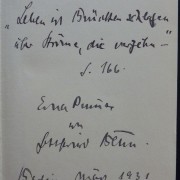 „Leben ist Brücken schlagen
über Ströme, die vergehn –"
S. 166.
Gottfried Benn.
Berlin, März 1931